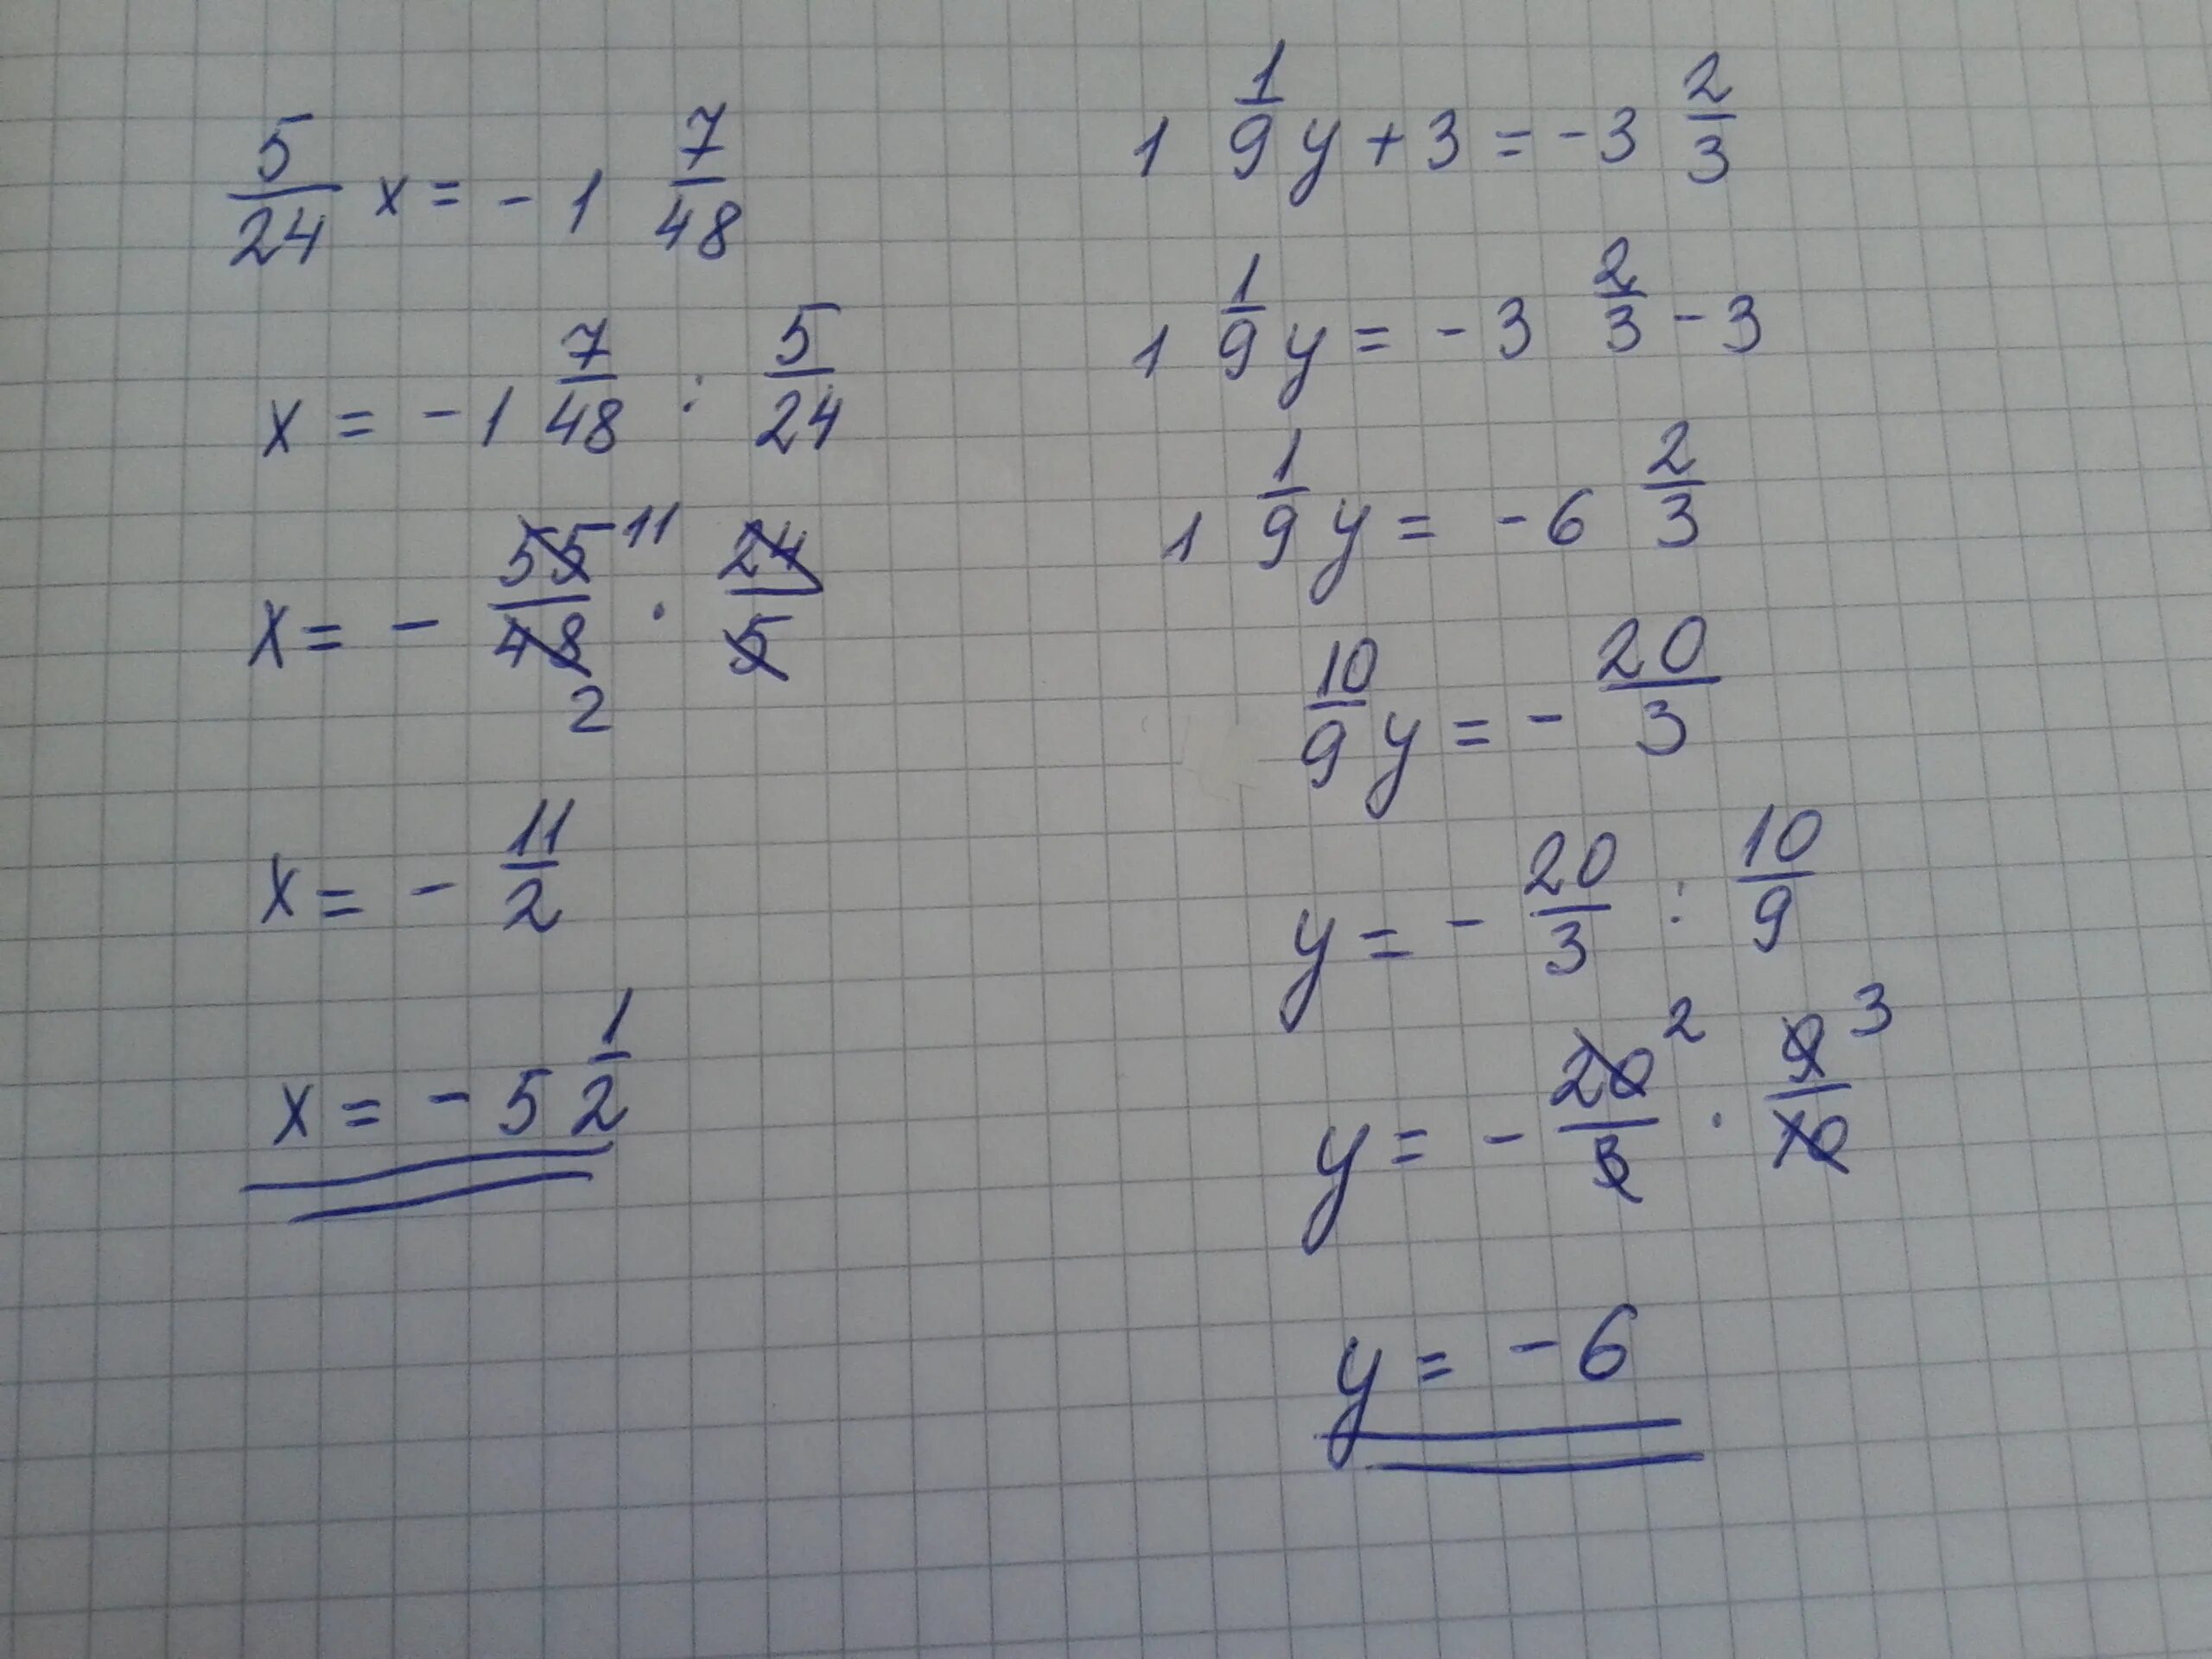 5/24 x = - 1 7/48
x = - 1 7/48 : 5/24
x = - 55/48 · 24/5 11 2
x = - 11/2
x = - 5 1/2
1 1/9 y + 3 = - 3 2/3
1 1/9 y = - 3 2/3 - 3
1 1/9 y = - 6 2/3
10/9 y = - 20/3
y = - 20/3 : 10/9
y = - 20/3 · 9/10 2 3
y = - 6